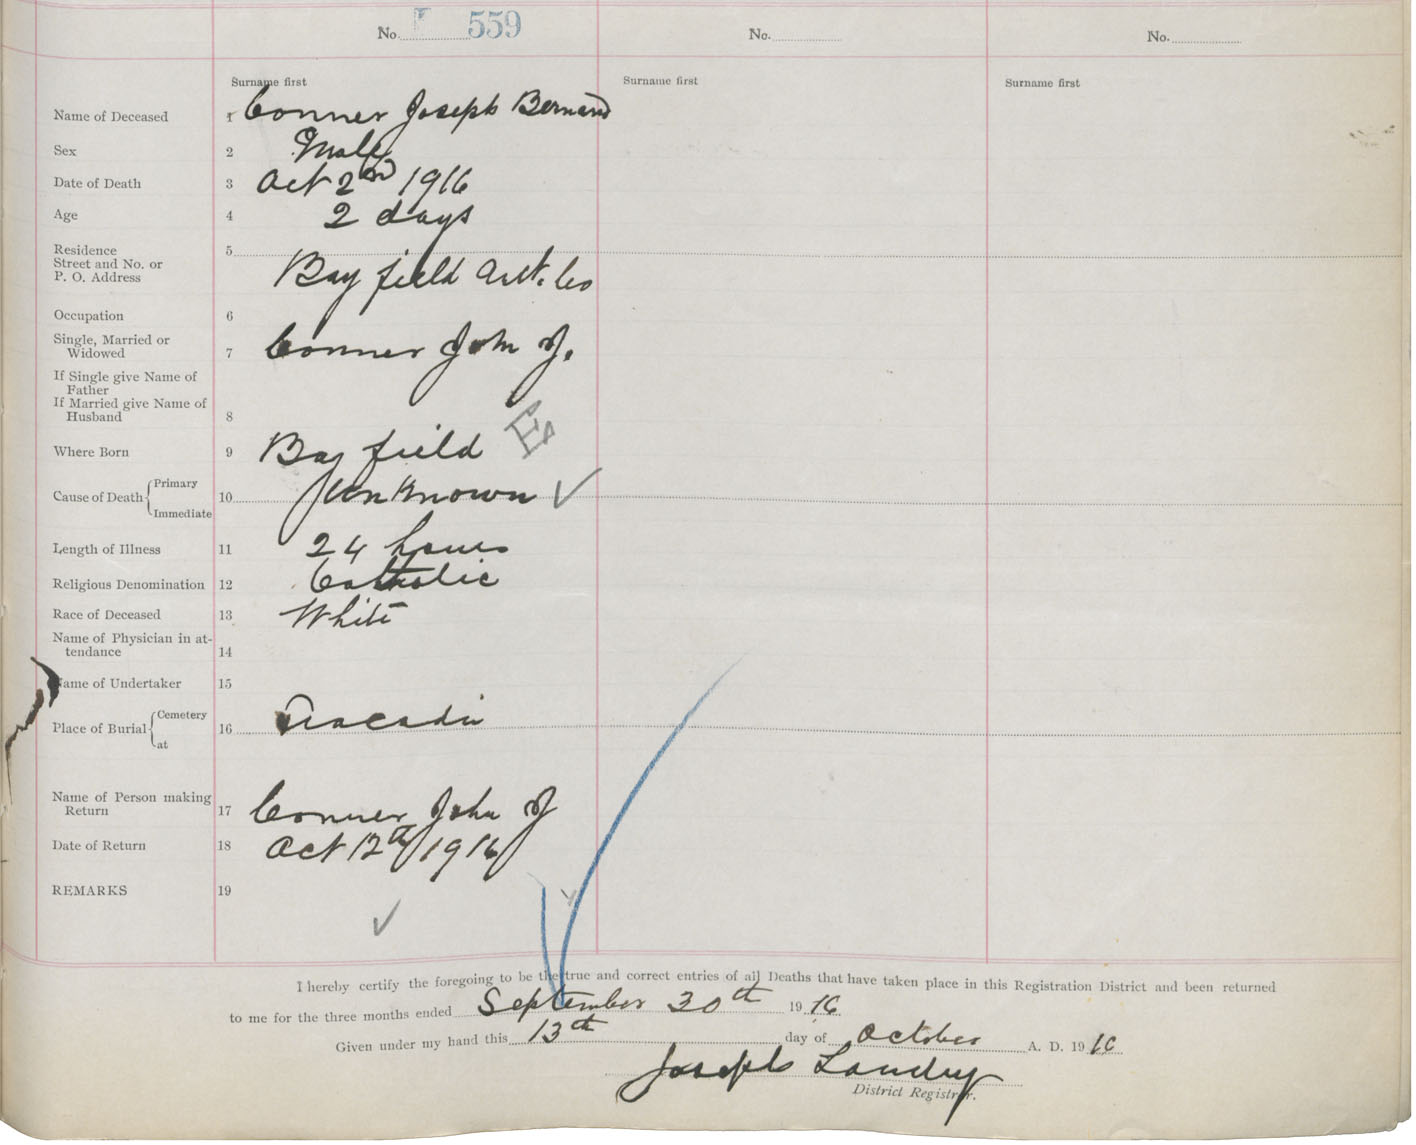 No. 559 No. No.
Surname first Surname first Surname first
Name of Deceased 1 Conner Joseph Bernard
Sex 2 Male
Date of Death 3 Oct 2nd 1916
Age 4 2 days
Residence 5
Street and No. or
P. O. Address Bay field Ant. Co
Occupation 6
Single, Married or
Widowed 7 Conner John J.
If Single give Name of
Father
If Married give Name of
Husband 8
Where Born 9 Bay field E
Cause of Death Primary 10 Unknown ✓
Immediate
Length of Illness 11 24 hours
Religious Denomination 12 Catholic
Race of Deceased 13 White
Name of Physician in at-
tendance 14
Name of Undertaker 15
Place of Burial Cemetery 16 Tracadie
at
Name of Person making
Return 17 Conner John J
Date of Return 18 Oct 12th 1916
REMARKS 19
I hereby certify the foregoing to be the true and correct entries of all Deaths that have taken place in this Registration District and been returned
to me for the three months ended September 30th 1916
Given under my hand this 13th day of October A. D. 1916
Joseph Landry
District Registrar.